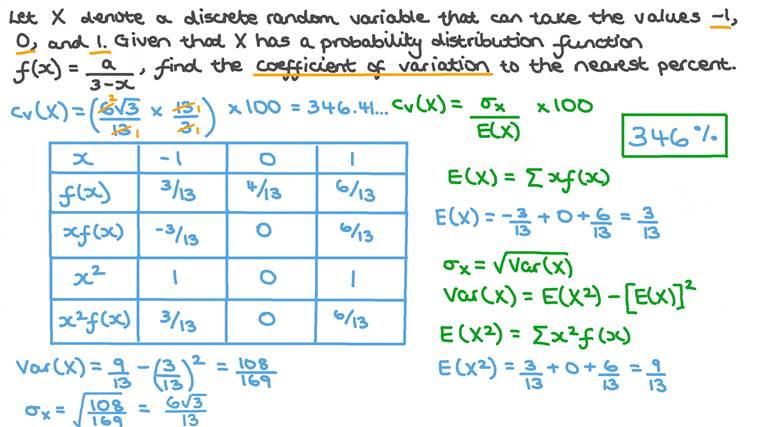 Let X denote a discrete random variable that can take the values −1,
0, and 1. Given that X has a probability distribution function
f(x) = a/(3−x), find the coefficient of variation to the nearest percent.
cᵥ(X) = (6√3/13 × 13/3) × 100 = 346.41...
cᵥ(X) = σₓ/E(X) × 100
346 %
x −1 0 1
f(x) 3/13 4/13 6/13
xf(x) −3/13 0 6/13
x² 1 0 1
x²f(x) 3/13 0 6/13
Var(X) = 9/13 − (3/13)² = 108/169
σₓ = √(108/169) = 6√3/13
E(X) = Σxf(x)
E(X) = −3/13 + 0 + 6/13 = 3/13
σₓ = √Var(X)
Var(X) = E(X²) − [E(X)]²
E(X²) = Σx²f(x)
E(X²) = 3/13 + 0 + 6/13 = 9/13